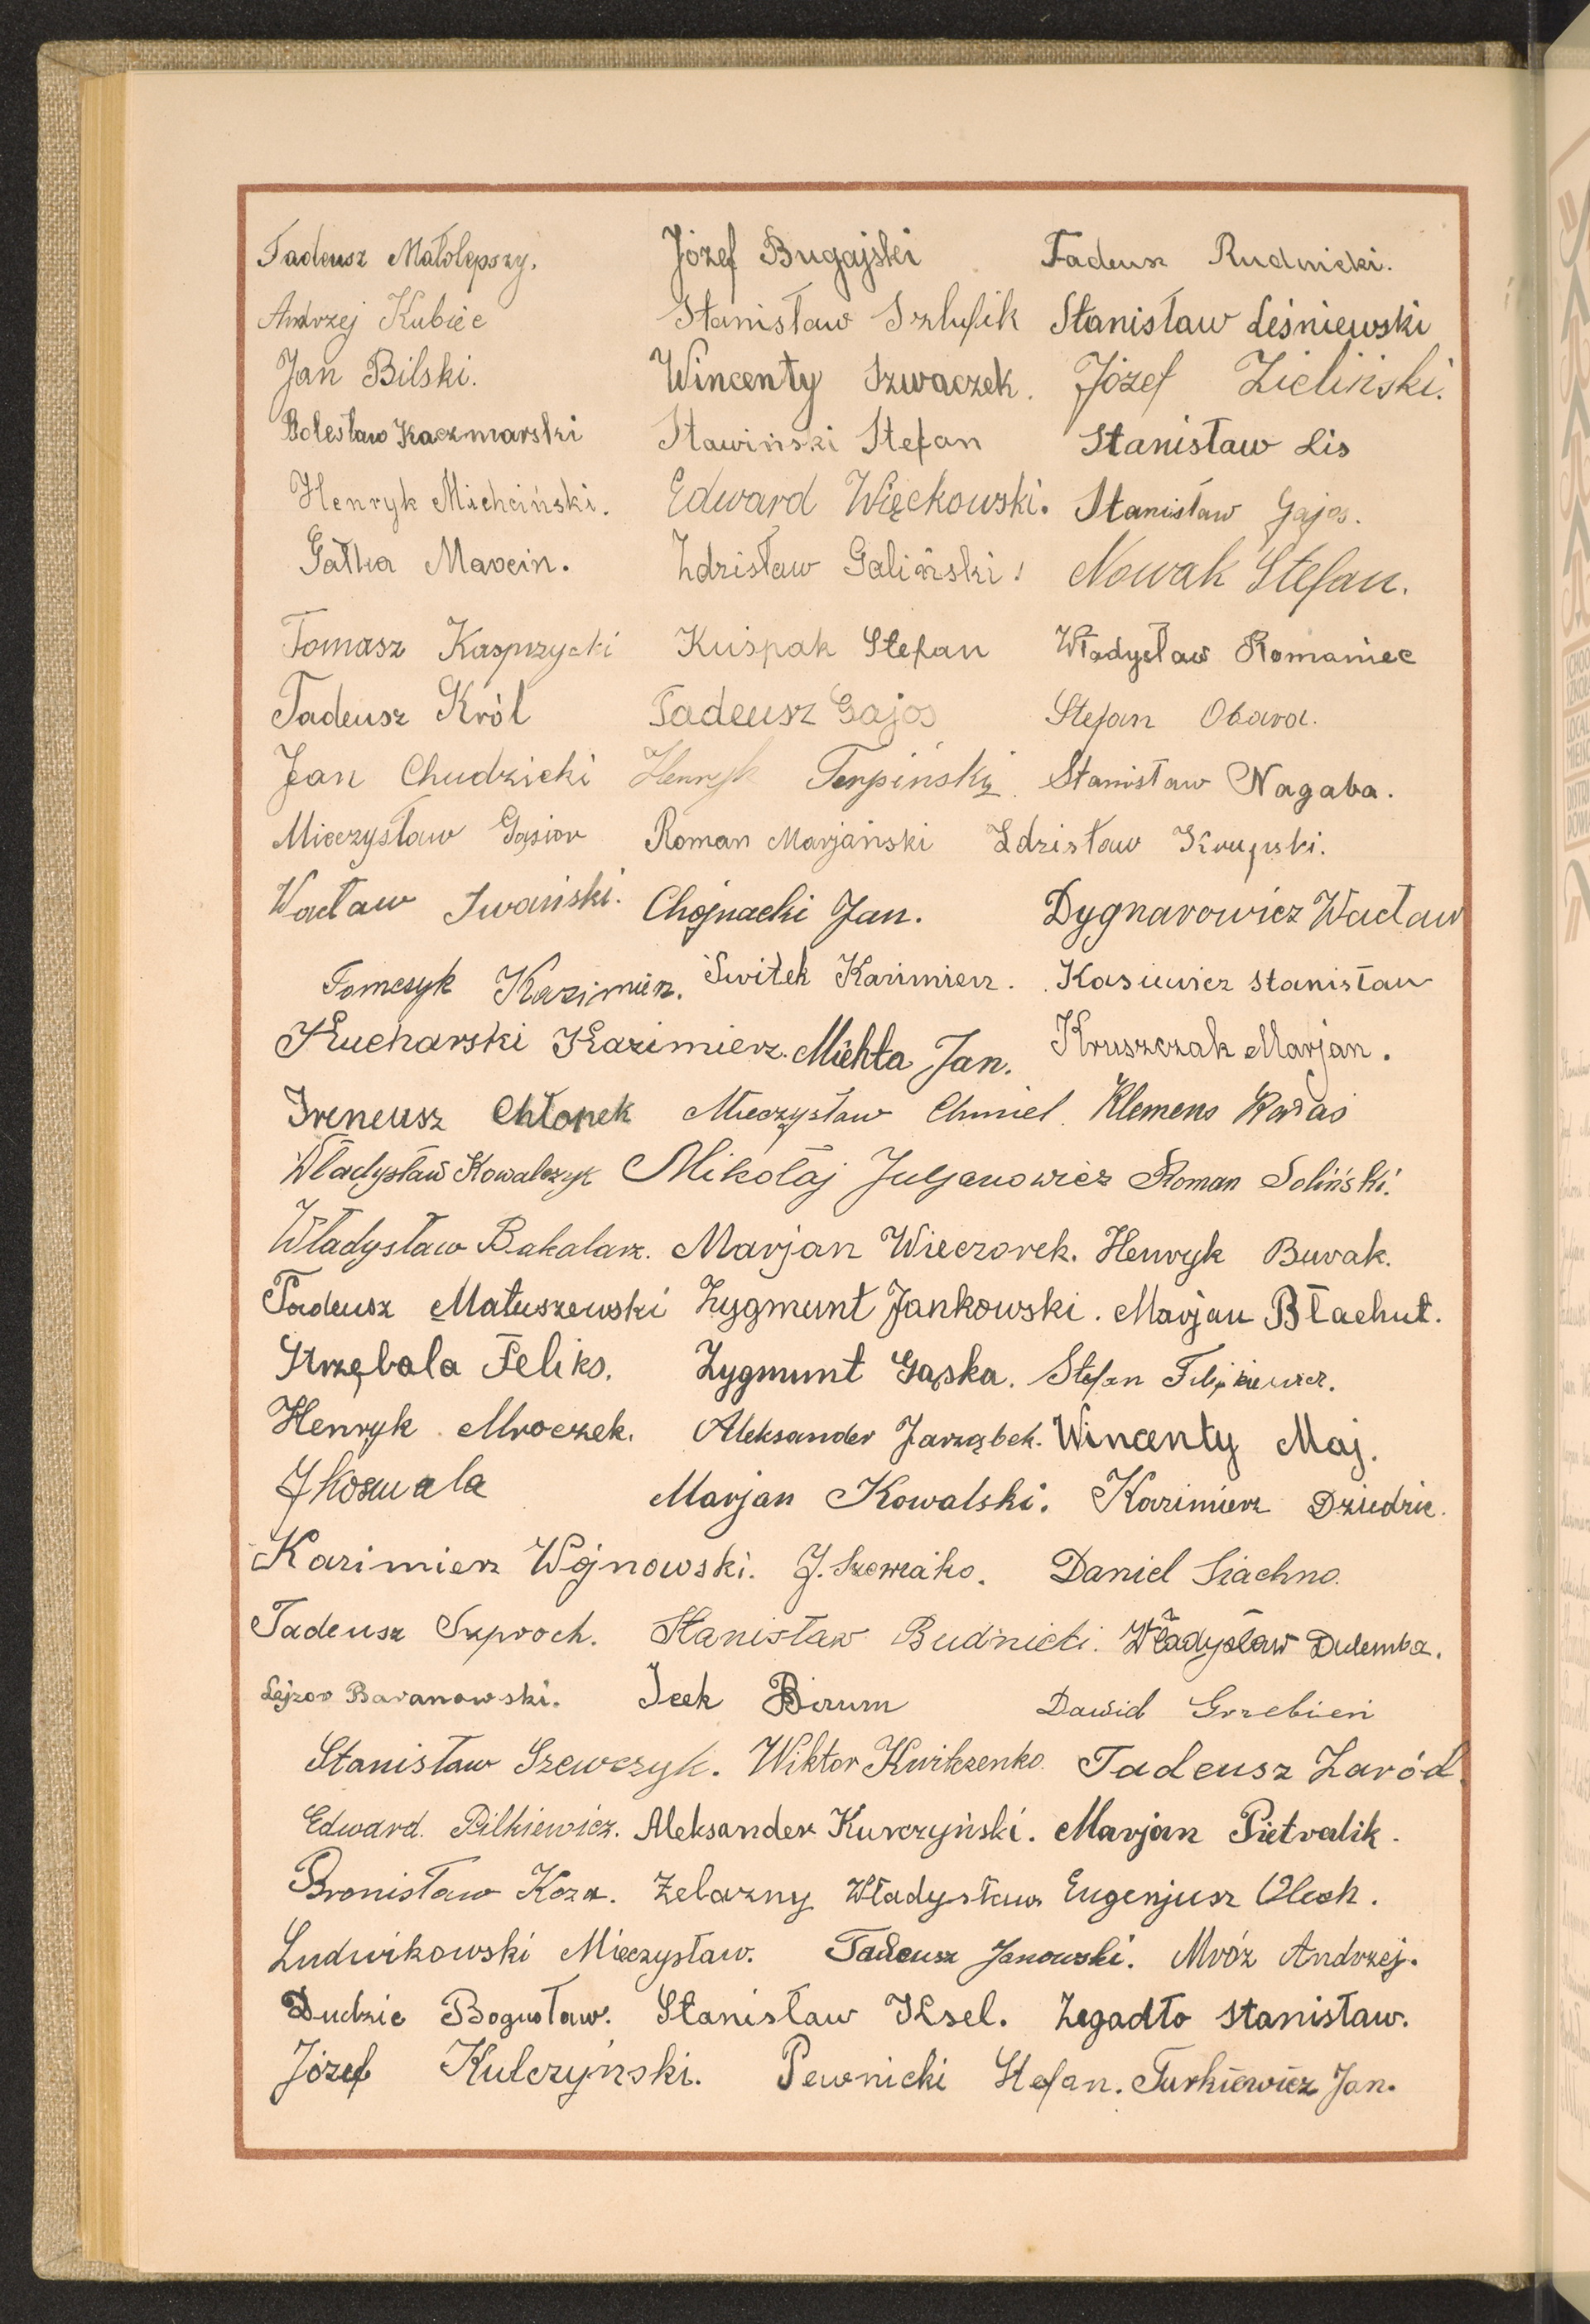 Tadeusz Małolepszy. Józef Bugajski Tadeusz Rudnicki.
Andrzej Kubiec Stanisław Szlufik Stanisław Leśniewski
Jan Bilski. Wincenty Szwaczek. Józef Zieliński.
Bolesław Kaczmarski Stawiński Stefan Stanisław Lis
Henryk Michciński. Edward Więckowski. Stanisław Gajos.
Gałka Marcin. Zdzisław Galiński! Nowak Stefan.
Tomasz Kasprzycki Kuśpak Stefan Władysław Romaniec
Tadeusz Król Tadeusz Gajos Stefan Obara.
Jan Chudzicki Henryk Terpiński. Stanisław Nagaba.
Mieczysław Gąsior Roman Marjański Zdzisław Krupski.
Wacław Iwański. Chojnacki Jan. Dygnarowicz Wacław
Tomczyk Kazimierz. Świtek Kazimierz. Kasiewicz Stanisław
Kucharski Kazimierz. Michta Jan. Kruszczak Marjan.
Ireneusz Chłopek Mieczysław Chmiel. Klemens Karaś
Władysław Kowalczyk Mikołaj Juljanowicz Roman Soliński.
Władysław Bakalarz. Marjan Wieczorek. Henryk Burak.
Tadeusz Matuszewski Zygmunt Jankowski. Marjan Błachut.
Strzębała Feliks. Zygmunt Gąska. Stefan Filipkiewicz.
Henryk Mroczek. Aleksander Jarząbek. Wincenty Maj.
J Koszuala Marjan Kowalski. Kazimierz Dziedzic.
Kazimierz Wójnowski. J. Daniel Siachno.
Tadeusz Suproch. Stanisław Budnicki. Władysław Dulemba.
Lejzor Baranowski. Icek Birum Dawid Grzebień
Stanisław Szewczyk. Wiktor Kwitczenko. Tadeusz Zaród.
Edward. Pilkiewicz. Aleksander Kurczyński. Marjan Pietralik.
Bronisław Koza. Żelazny Władysław Eugenjusz Olech.
Ludwikowski Mieczysław. Tadeusz Janowski. Mróz Andrzej.
Dudzic Bogusław. Stanisław Ksel. Zegadło Stanisław.
Józef Kulczyński. Pewnicki Stefan. Turkiewicz Jan.